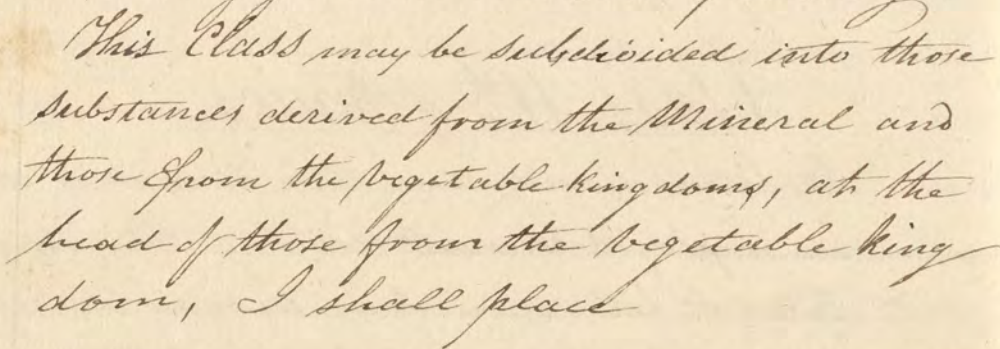 This Class may be subdivided into those
substances derived from the Mineral and
those from the vegetable kingdoms, at the
head of those from the vegetable king
dom, I shall place